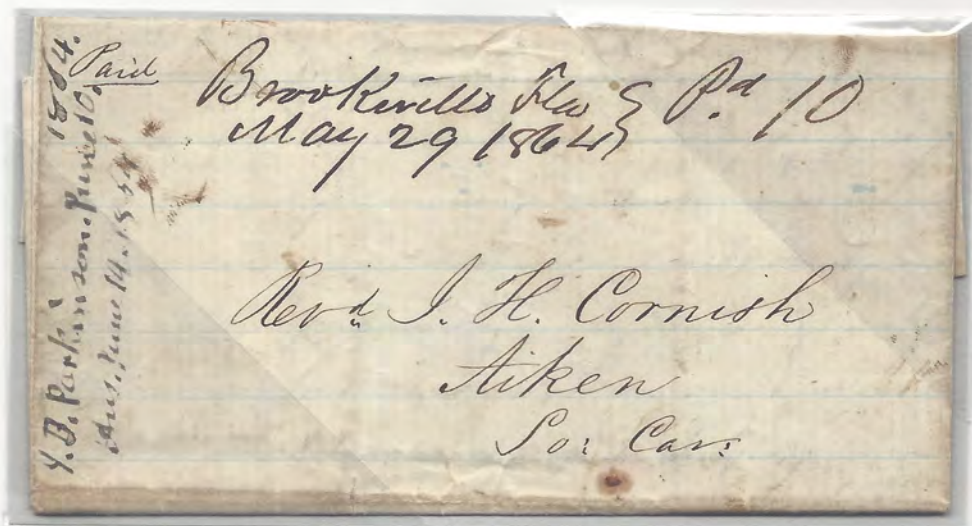 Paid
Brooksville Fla } Pd 10
May 29 1864 }
Revd J. H. Cornish
Aiken
So: Car:
Y. B. Parkinson. June 10. 1864.
Ans. June 14. 1864